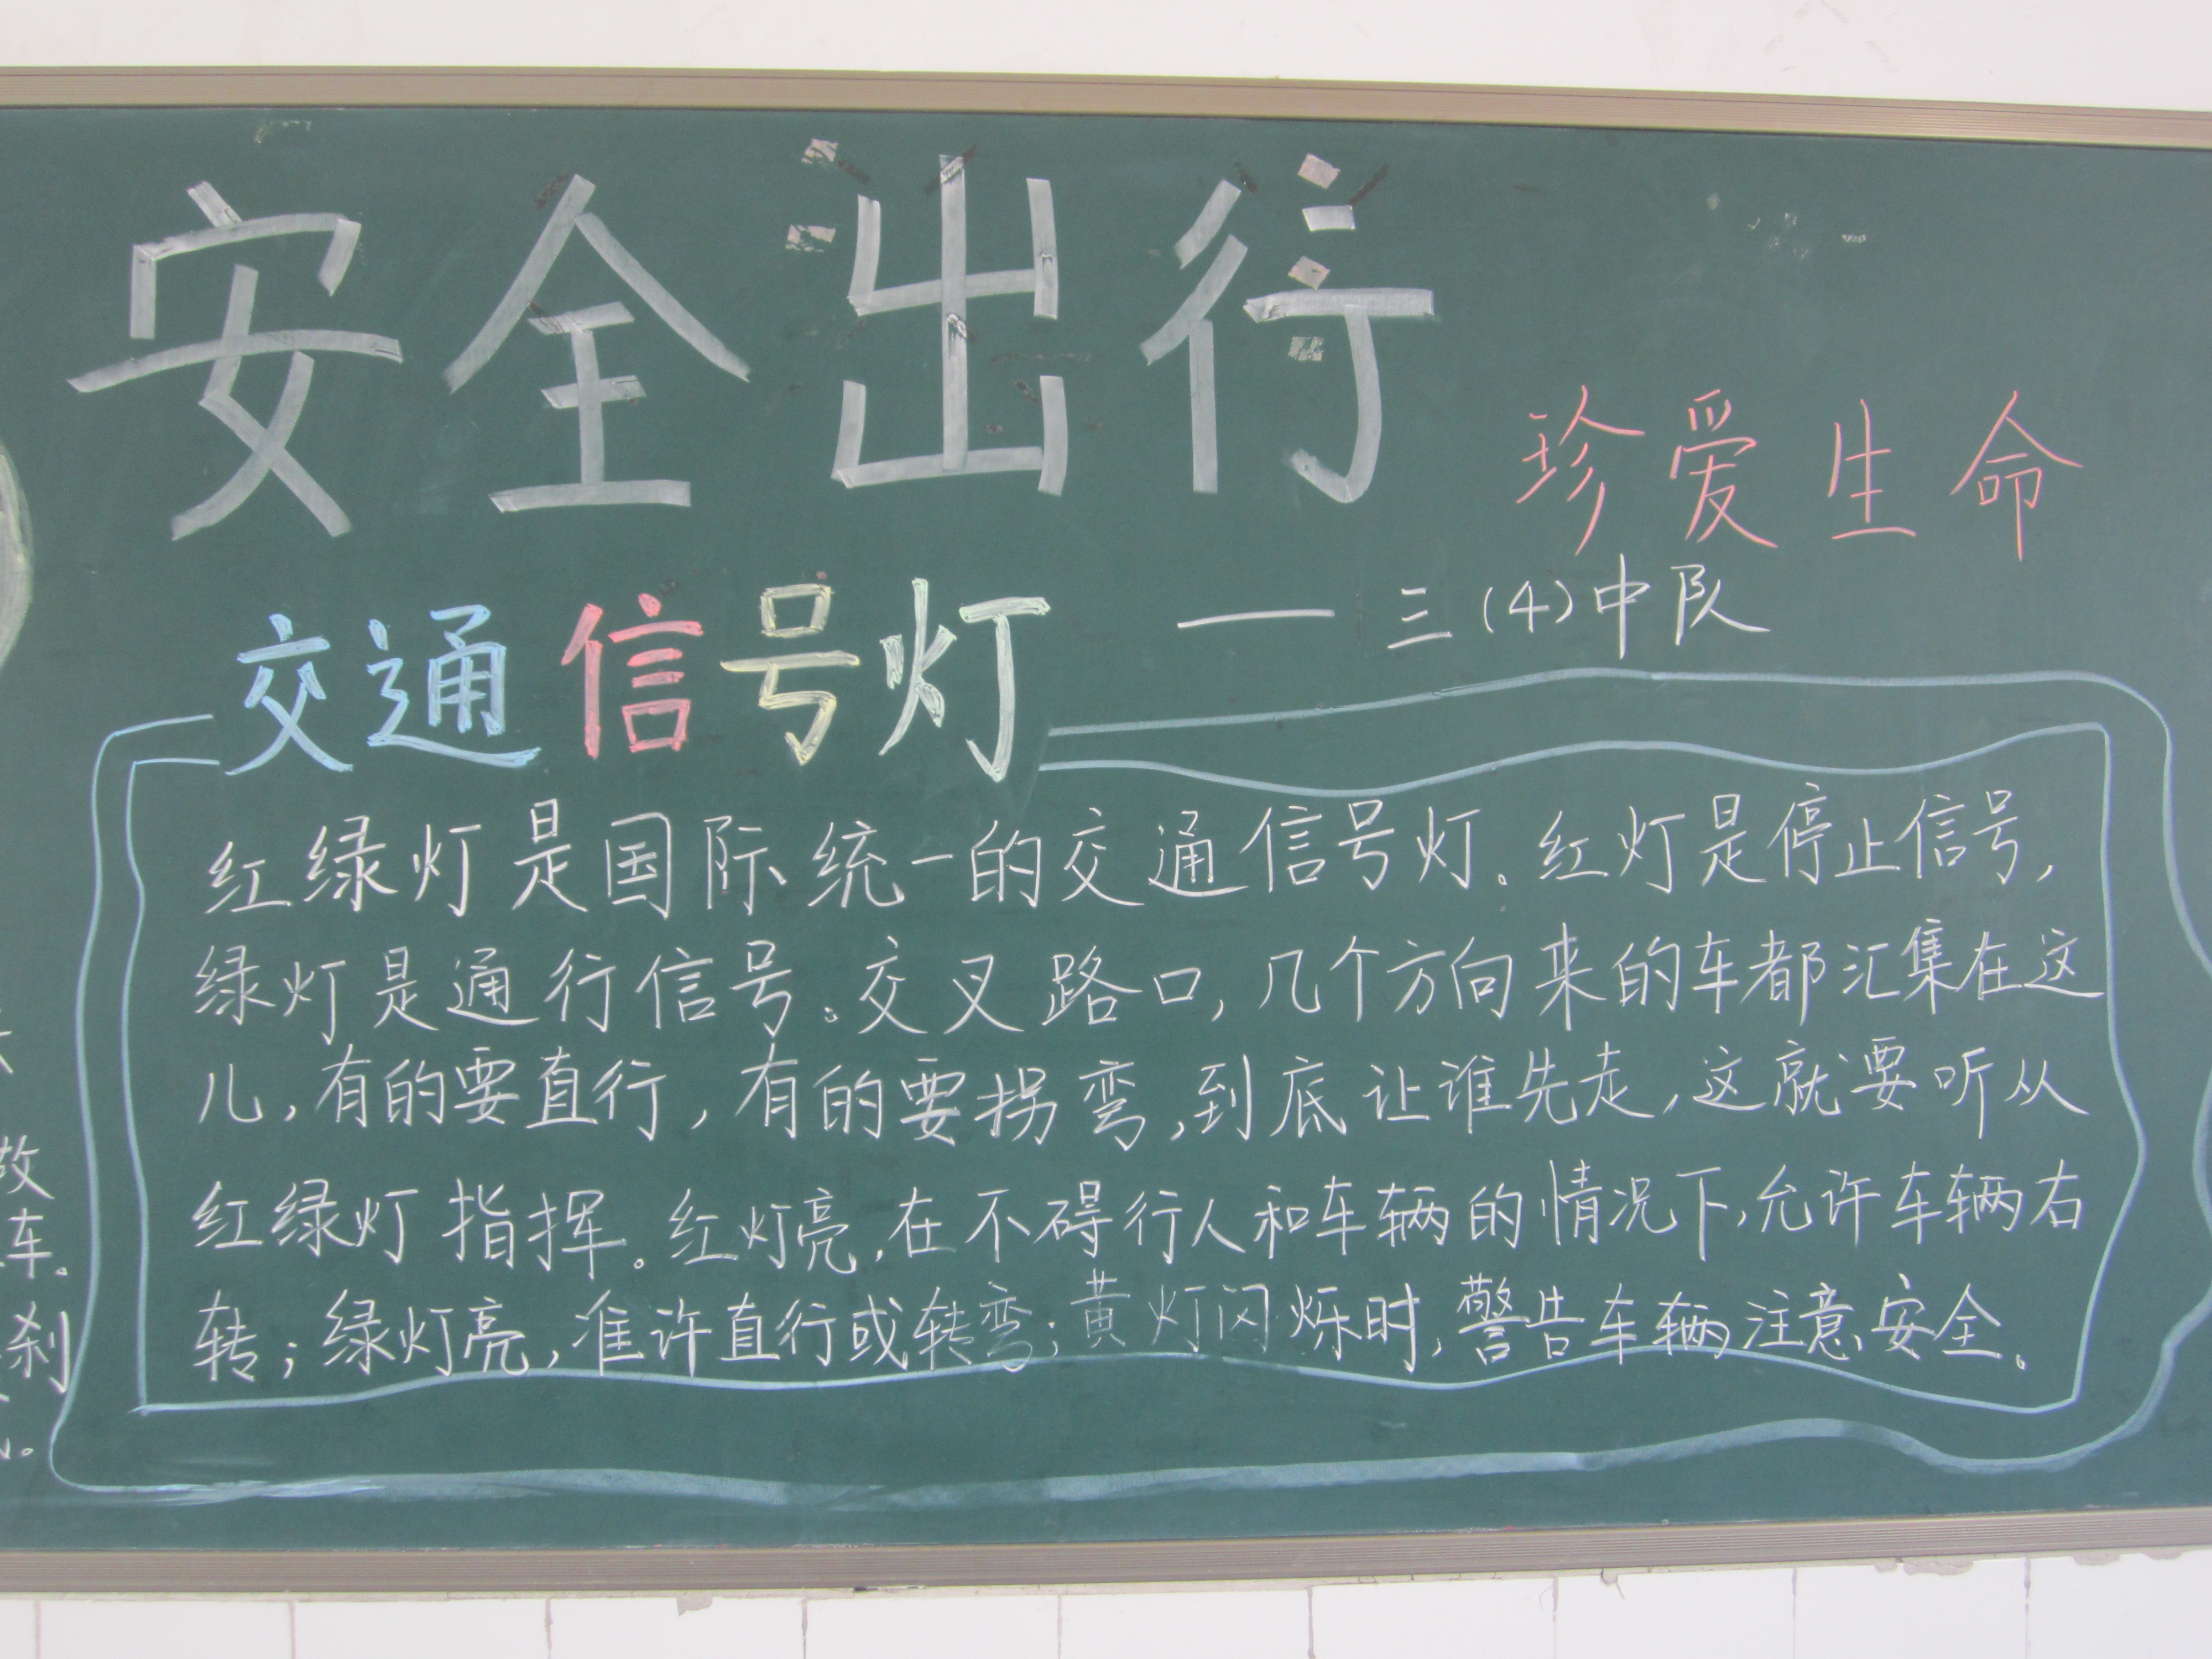 安全出行
珍爱生命
— 三(4)中队
交通信号灯
红绿灯是国际统一的交通信号灯。红灯是停止信号,
绿灯是通行信号。交叉路口,几个方向来的车都汇集在这
儿,有的要直行,有的要拐弯,到底让谁先走,这就要听从
红绿灯指挥。红灯亮,在不碍行人和车辆的情况下,允许车辆右
转;绿灯亮,准许直行或转弯;黄灯闪烁时,警告车辆注意安全。
故
车。
刹